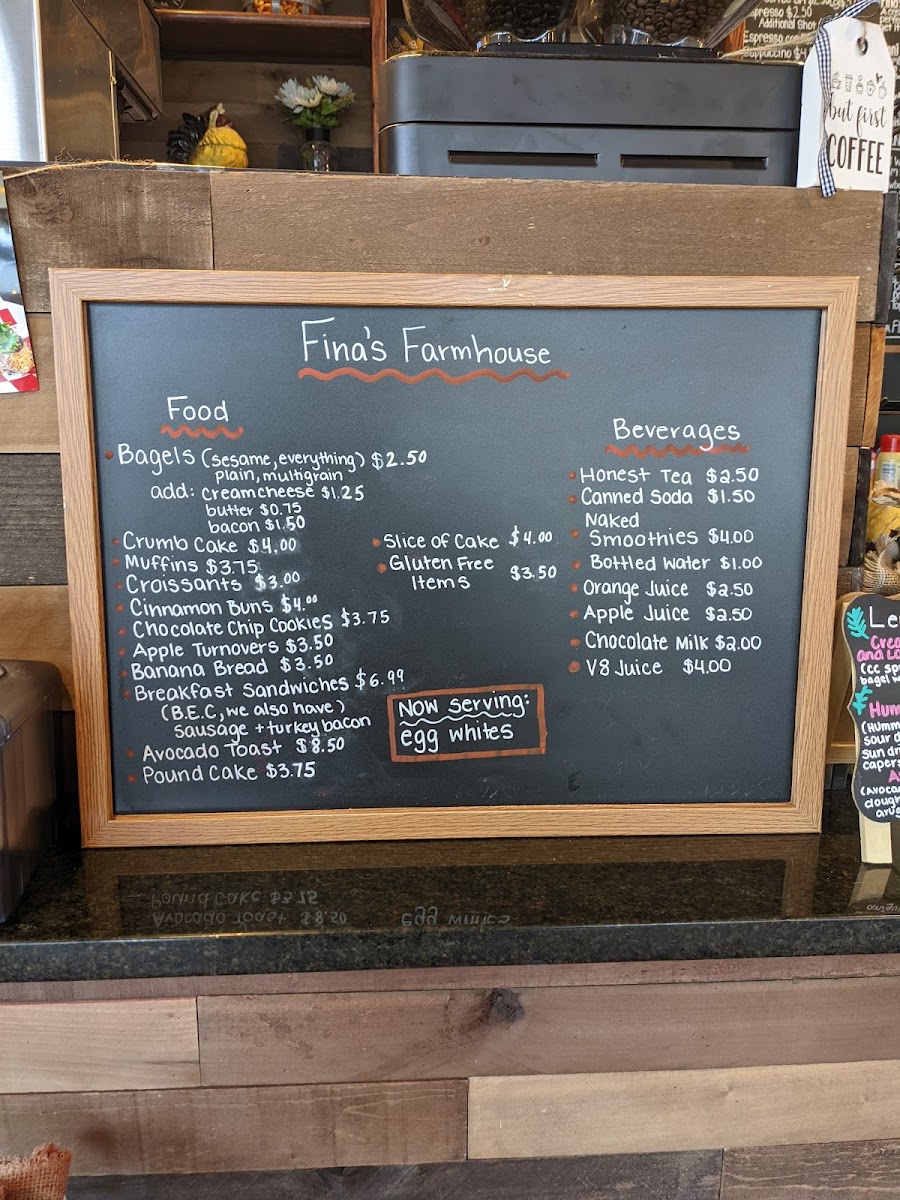 Espresso $2.50
Additional Shot
but first
COFFEE
Fina's Farmhouse
Food
Bagels (sesame, everything) $2.50
plain, multigrain
add: creamcheese $1.25
butter $0.75
bacon $1.50
Crumb Cake $4.00
Muffins $3.75
Croissants $3.00
Cinnamon Buns $4.00
Chocolate Chip Cookies $3.75
Apple Turnovers $3.50
Banana Bread $3.50
Breakfast Sandwiches $6.99
(B.E.C, we also have)
sausage + turkey bacon
Avocado Toast $8.50
Pound Cake $3.75
Slice of Cake $4.00
Gluten Free
Items $3.50
Now serving:
egg whites
Beverages
Honest Tea $2.50
Canned Soda $1.50
Naked
Smoothies $4.00
Bottled Water $1.00
Orange Juice $2.50
Apple Juice $2.50
Chocolate Milk $2.00
V8 Juice $4.00
and
(cc
bagel
sour
sun
capers